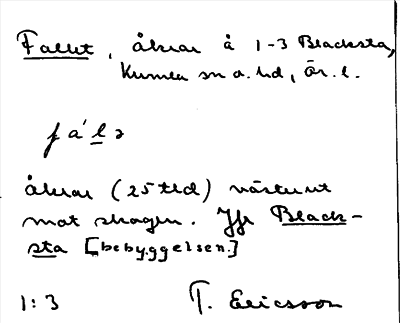 Fallet, åkrar å 1-3 Blacksta,
Kumla sn o. hd, Ör. l.
fa´lə
åkrar (25 tld) västerut
mot skogen. Jfr Black-
sta [bebyggelsen.]
1:3 T. Ericsson